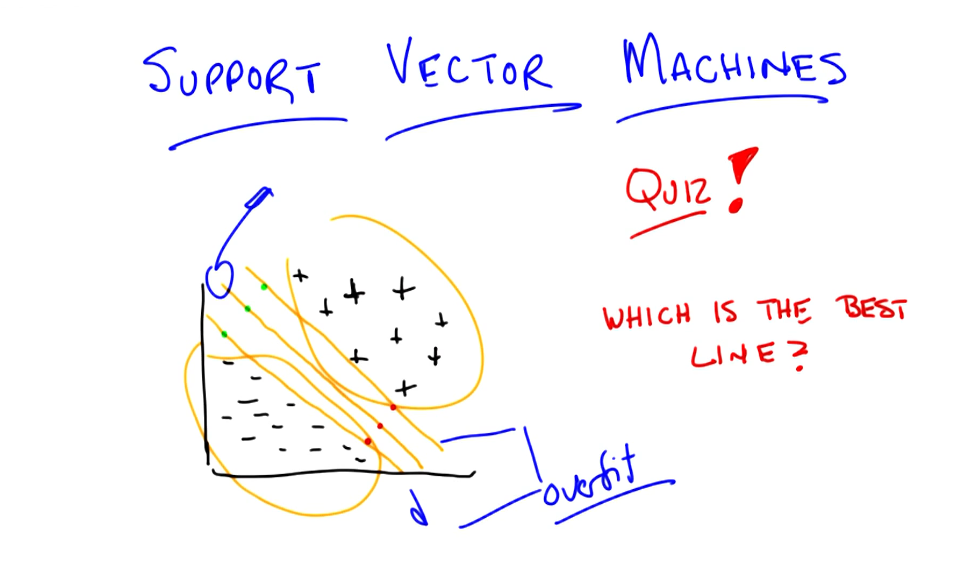 SUPPORT VECTOR MACHINES
QUIZ!
WHICH IS THE BEST
LINE?
overfit